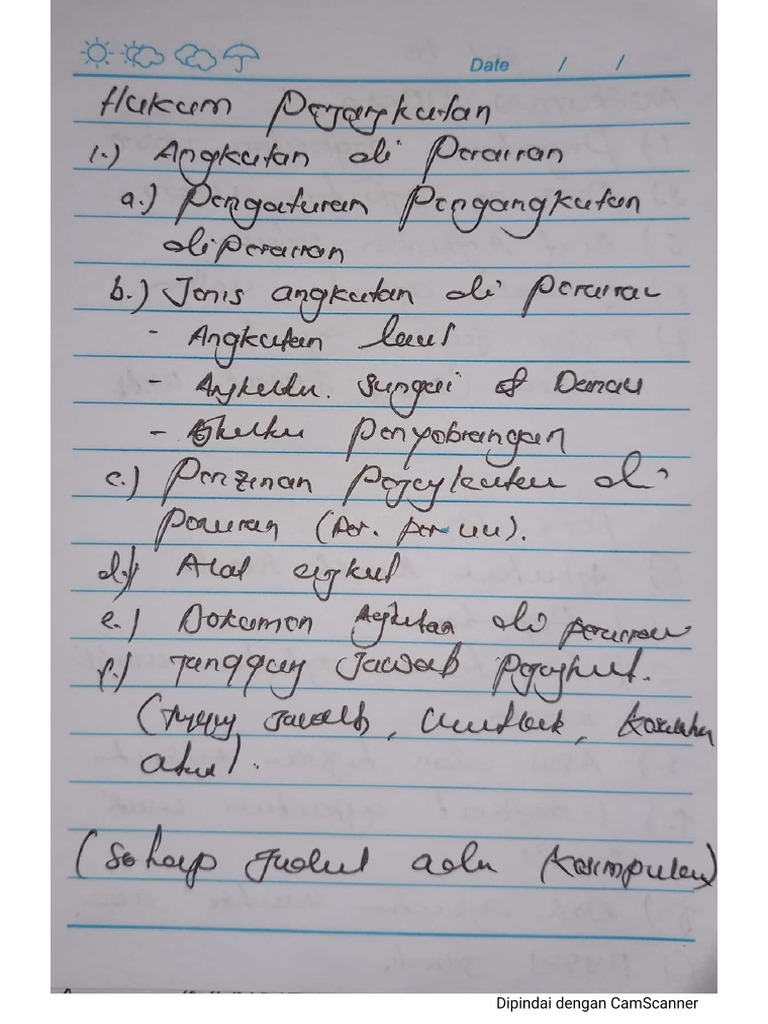 Date / /
Hukum Pengangkutan
1.) Angkutan di Perairan
a.) Pengaturan Pengangkutan
diperairan
b.) Jenis angkutan di perairan
- Angkutan laut
- Angkutan sungai & Danau
- Angkutan penyebrangan
c.) Perizinan Pengangkutan di
perairan (Per. per-uu).
d.) Alat angkut
e.) Dokumen Angkutan di perairan
f.) Tanggung Jawab Pengangkut.
(Tanggung Jawab,
(Setiap Judul ada Kesimpulan)
Dipindai dengan CamScanner